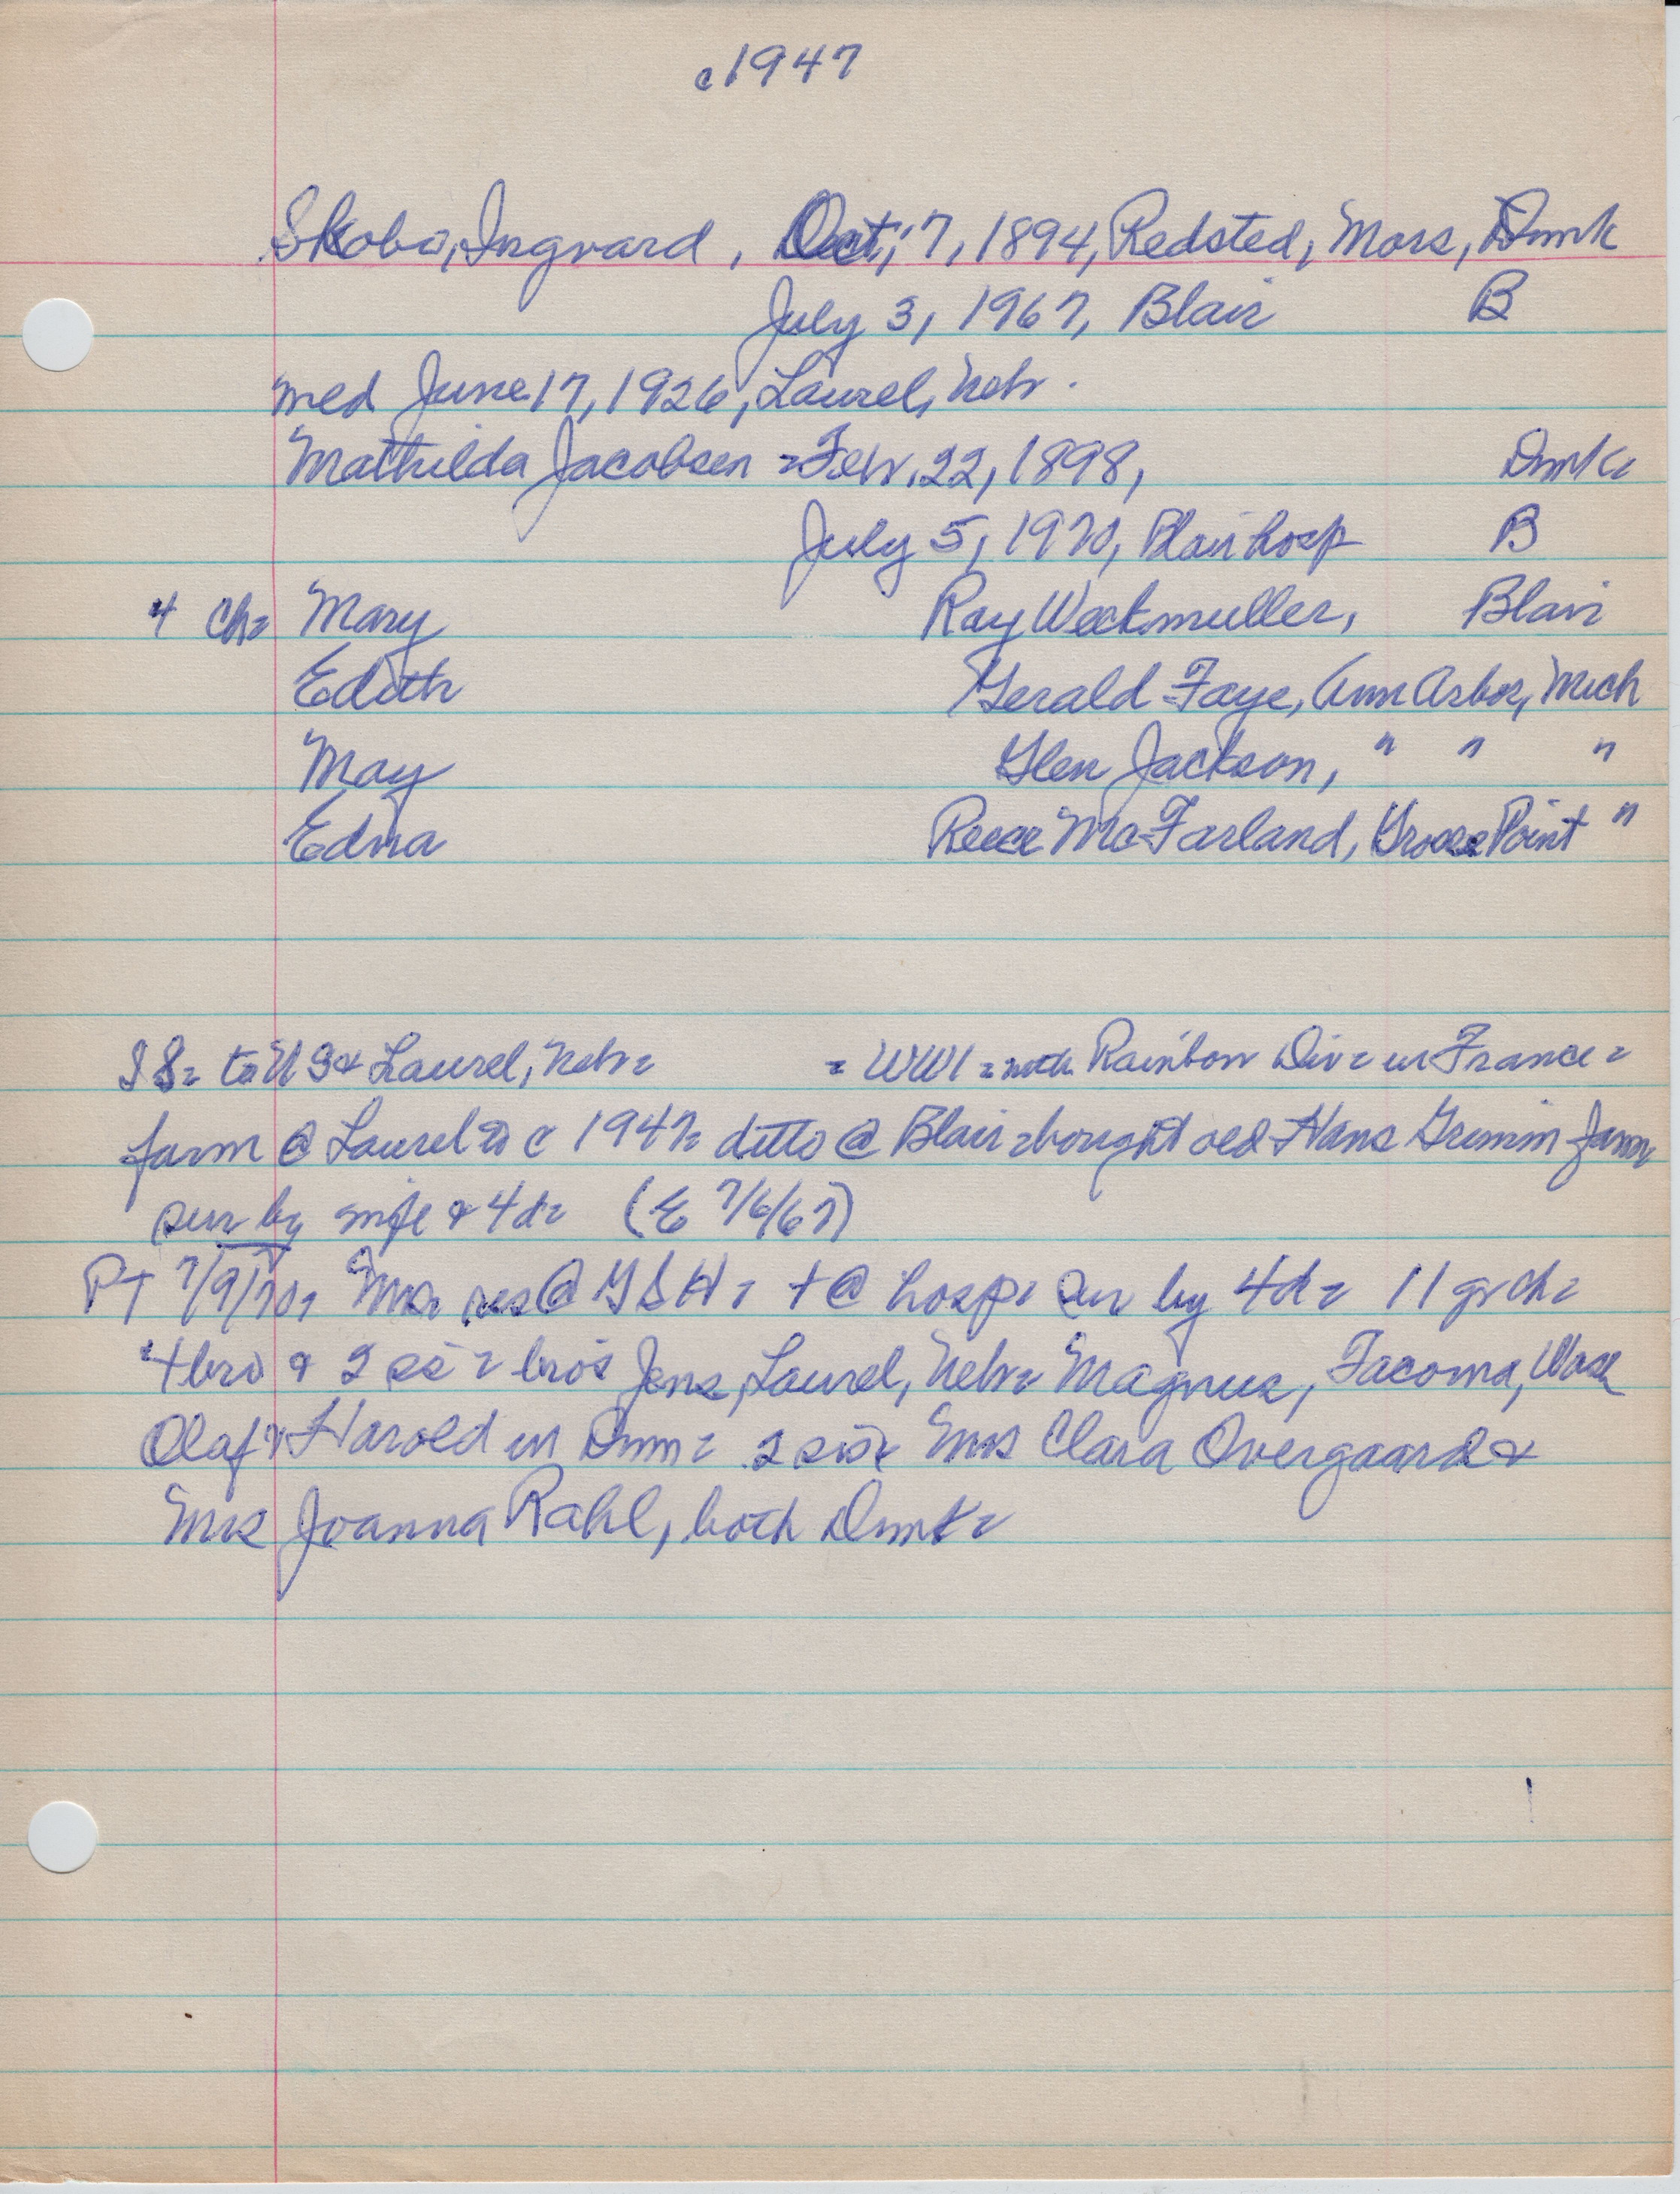 c1947
Skobo, Ingvard, Oct, 7, 1894, Redsted, Mors, Dnmk
July 3, 1967, Blair B
med June 17, 1926, Laurel, Nebr.
Mathilda Jacobsen = Febr. 22, 1898, Dnmk=
July 5, 1970, Blair hosp B
4 Ch= Mary Ray Weckmuller, Blair
Edith Gerald Faye, Ann Arbor, Mich
May Glen Jackson, " " "
Edna Reece McFarland, Grosse Point "
to US & Laurel, Nebr= = WW1 = with Rainbow Div= in France=
farm @ Laurel to c 1947= ditto @ Blair = bought old Hans Grimm farm
sur by wife & 4d= (E 7/6/67)
PT 7/9/70, Mrs. res @ GSH, + @ hosp, sur by 4d= 11 grch=
4 bro & 2 sis = bros Jens, Laurel, Nebr= Magnus, Tacoma, Wash
Olaf & Harold in Dnm= 2 sis= Mrs Clara Overgaard &
Mrs Joanna Rahl, both Dnmk=